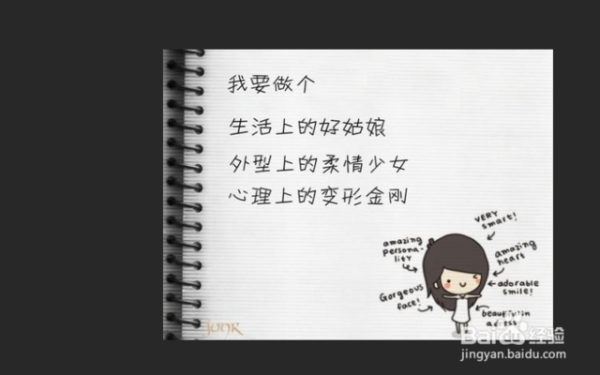 我要做个
生活上的好姑娘
外型上的柔情少女
心理上的变形金刚
VERY
smart!
amazing
persona-
lity
amazing
heart
adorable
smile!
Gorgeous
face!
Baidu 经验
jingyan.baidu.com